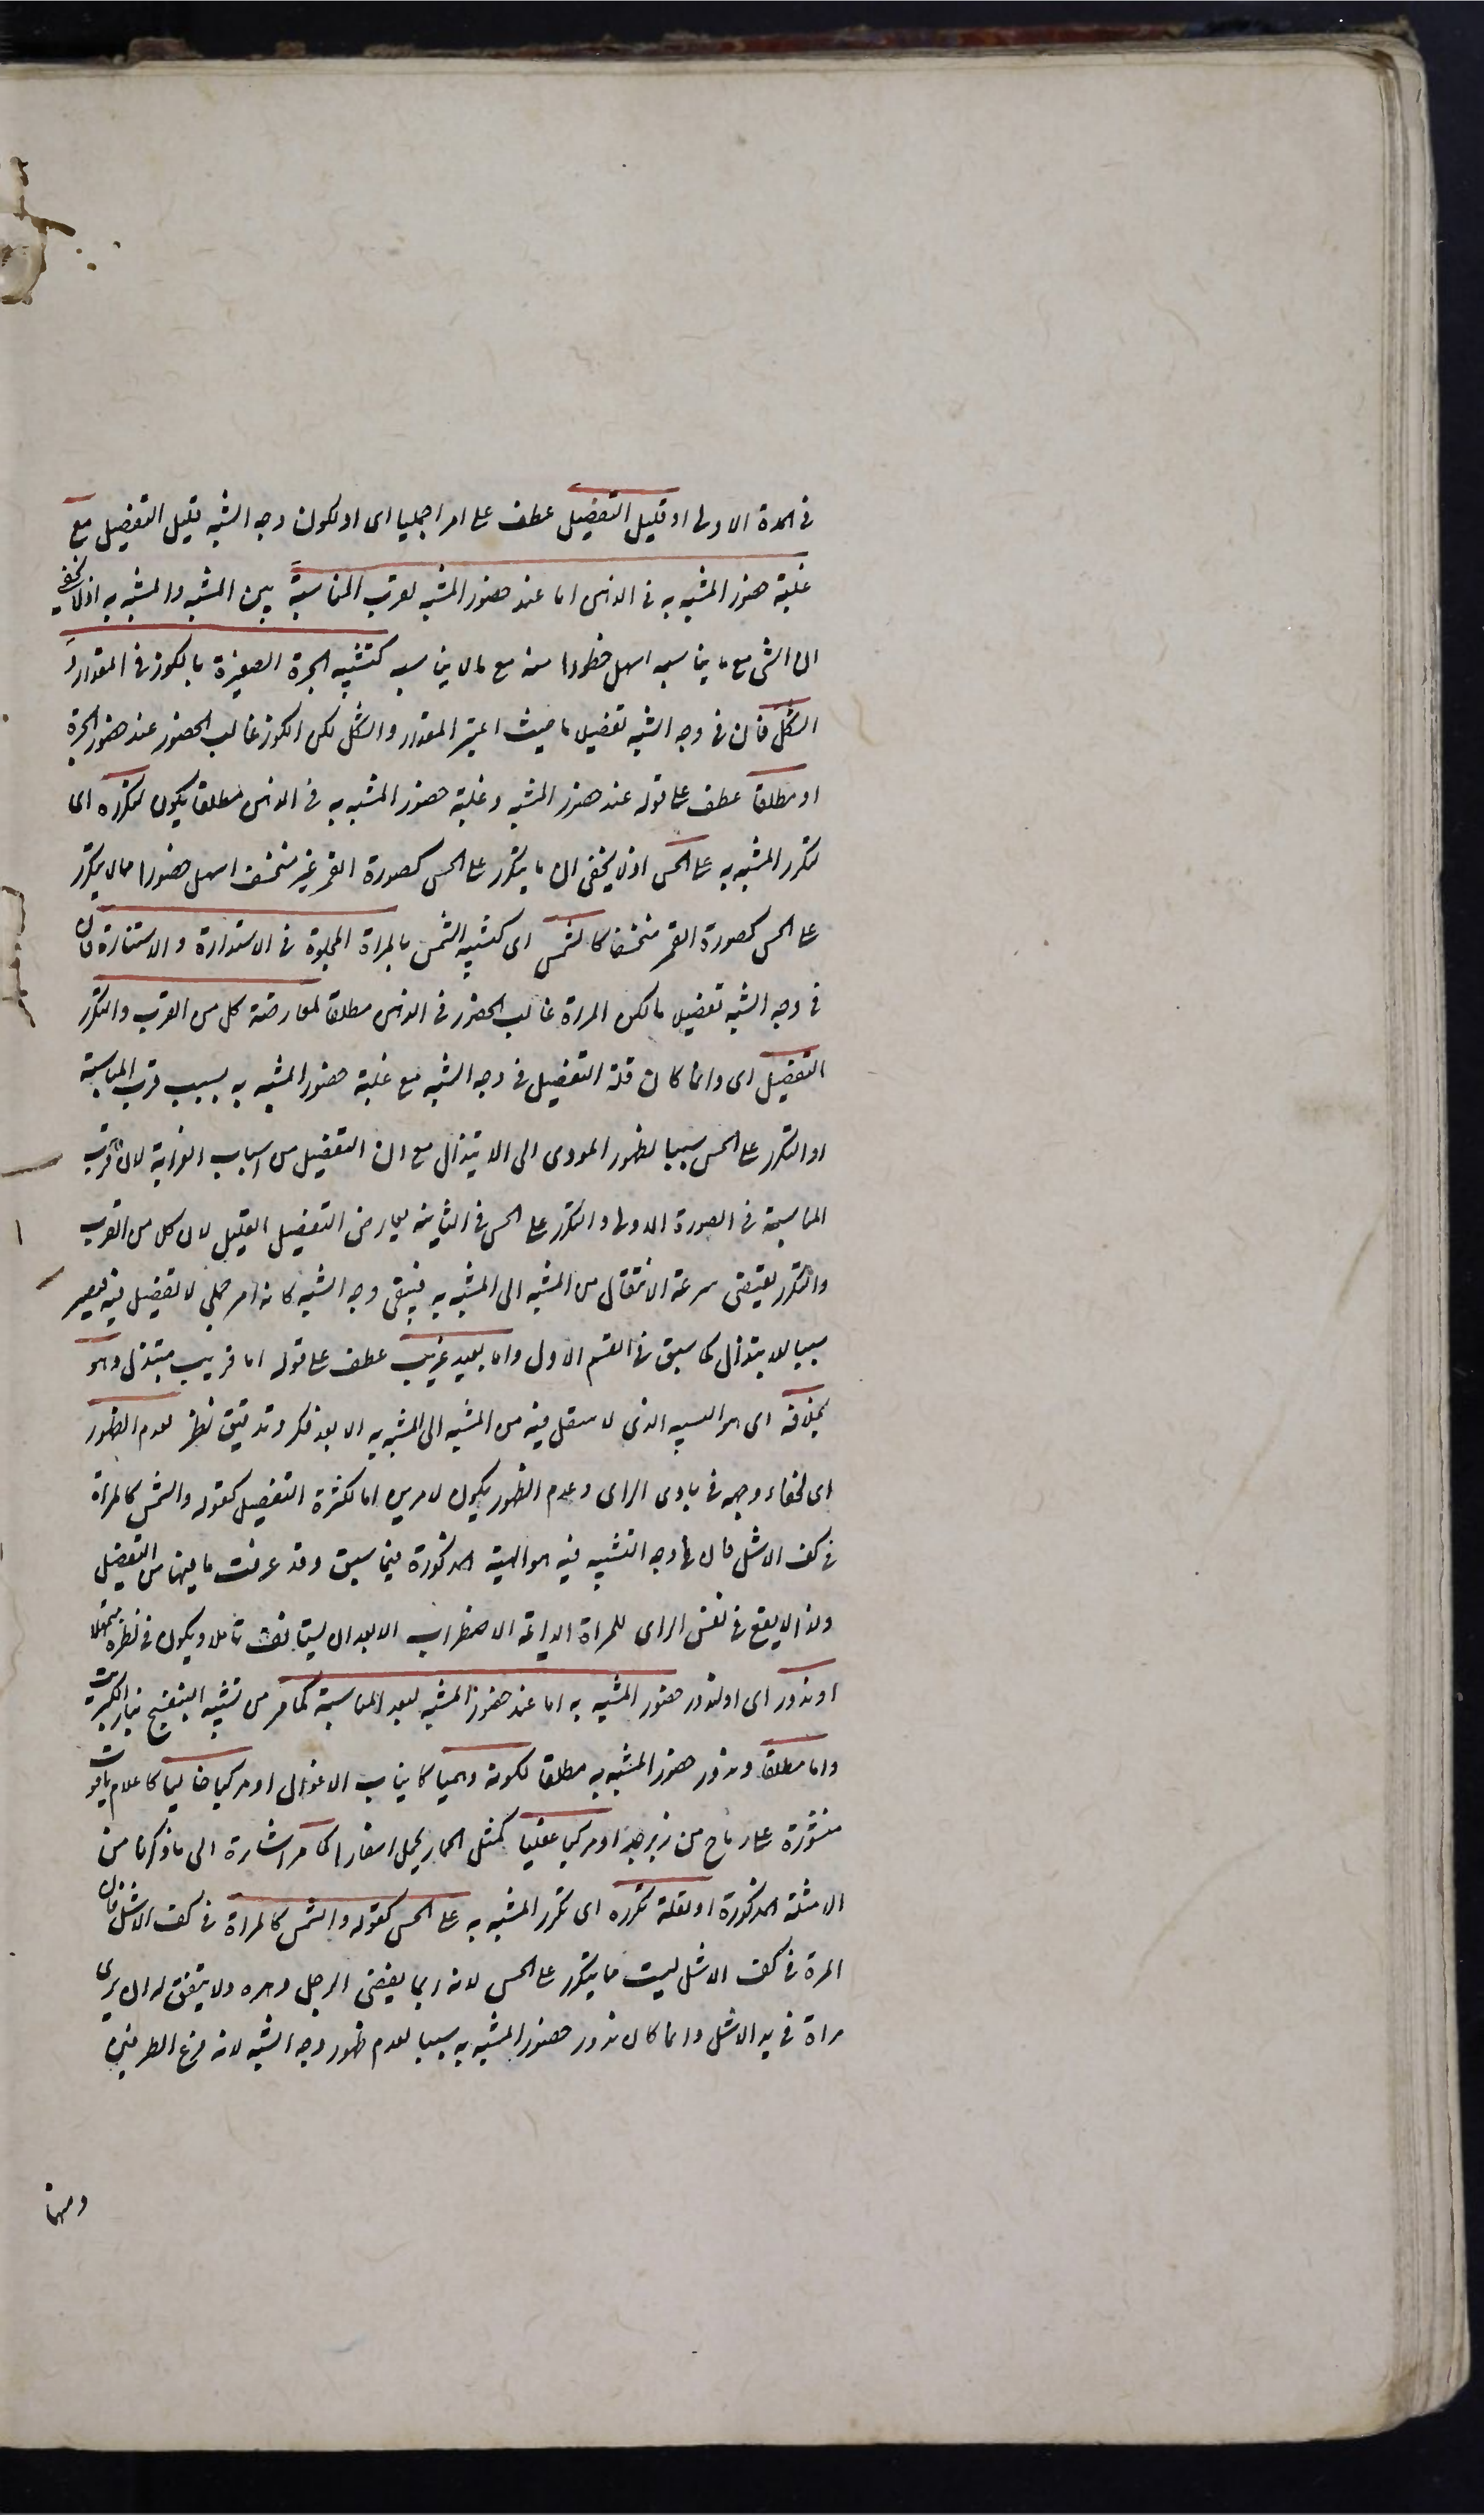 فى المرة الاولى او قليل التفضيل عطف على امرا جمليا اى او لكون وجه الشبه قليل التفضيل مع
غلبة حضور المشبه به فى الذهن اما عند حضور المشبه لقرب المناسبة بين المشبه والمشبه به اذ لا يخفى
ان الشى مع ما يناسبه اسهل حظورا منه مع ما لا يناسبه كتشبيه الجرة الصغيرة بالكوز فى المقدار و
الشكل فان فى وجه الشبه تفضيلا ما حيث اعتبر المقدار والشكل لكن الكوز غالب الحضور عند حضور الجرة
او مطلقا عطف على قوله عند حضور المشبه وغلبة حضور المشبه به فى الذهن مطلقا يكون لتكرره اى
لتكرر المشبه به على الحس اذ لا يخفى ان ما يتكرر على الحس كصورة القمر غير منخسف اسهل حضورا مما لا يتكرر
على الحس كصورة القمر منخسفا كالشمس اى كتشبيه الشمس بالمراة المجلوة فى الاستدارة والاستنارة فان
فى وجه الشبه تفضيلا ما لكن المراة غالب الحضور فى الذهن مطلقا لمعارضة كل من القرب والتكرر
التفضيل اى وانما كان قلة التفضيل فى وجه الشبه مع غلبة حضور المشبه به بسبب قرب المناسبة
او التكرر على الحس سببا لظهور المودى الى الابتذال مع ان التفضيل من اسباب الغرابة لان قرب
المناسبة فى الصورة الاولى والتكرر على الحس فى الثانية يعارض التفضيل القليل لان كل من القرب
والتكرر يقتضى سرعة الانتقال من المشبه الى المشبه به فيبقى وجه الشبه كانه امر جملى لا تفضيل فيه فيصير
سببا للابتذال كما سبق فى القسم الاول واما بعيد غريب عطف على قوله اما قريب مبتذل وهو
بخلافه اى هو التشبيه الذى لا ينتقل فيه من المشبه الى المشبه به الا بعد فكر وتدقيق نظر لعدم الظهور
اى لخفاء وجهه فى بادى الراى وعدم الظهور يكون لامرين اما لكثرة التفضيل كقوله والشمس كالمراة
فى كف الاشل فان وجه التشبيه فيه هو الهيئة المذكورة فيما سبق وقد عرفت ما فيها من التفضيل
ولذا لا يقع فى نفس الراى للمراة الدايمة الاضطراب الا بعد ان يستانف تاملا ويكون فى نظره متمهلا
او ندور اى او لندور حضور المشبه به اما عند حضور المشبه لبعد المناسبة كما مر من تشبيه البنفسج بنار الكبريت
واما مطلقا وندور حضور المشبه به مطلقا لكونه وهميا كانياب الاغوال او مركبا خياليا كاعلام ياقوت
منشورة على رماح من زبرجد او مركبا عقليا كمثل الحمار يحمل اسفارا كما مر اشارة الى ما ذكرنا من
الامثلة المذكورة او لقلة تكرره اى تكرر المشبه به على الحس كقوله والشمس كالمراة فى كف الاشل فان
المراة فى كف الاشل ليست مما يتكرر على الحس لانه ربما يقضى الرجل دهره ولا يتفق له ان يرى
مراة فى يد الاشل وانما كان ندور حضور المشبه به سببا لعدم ظهور وجه الشبه لانه فرع الطرفين
ومنها